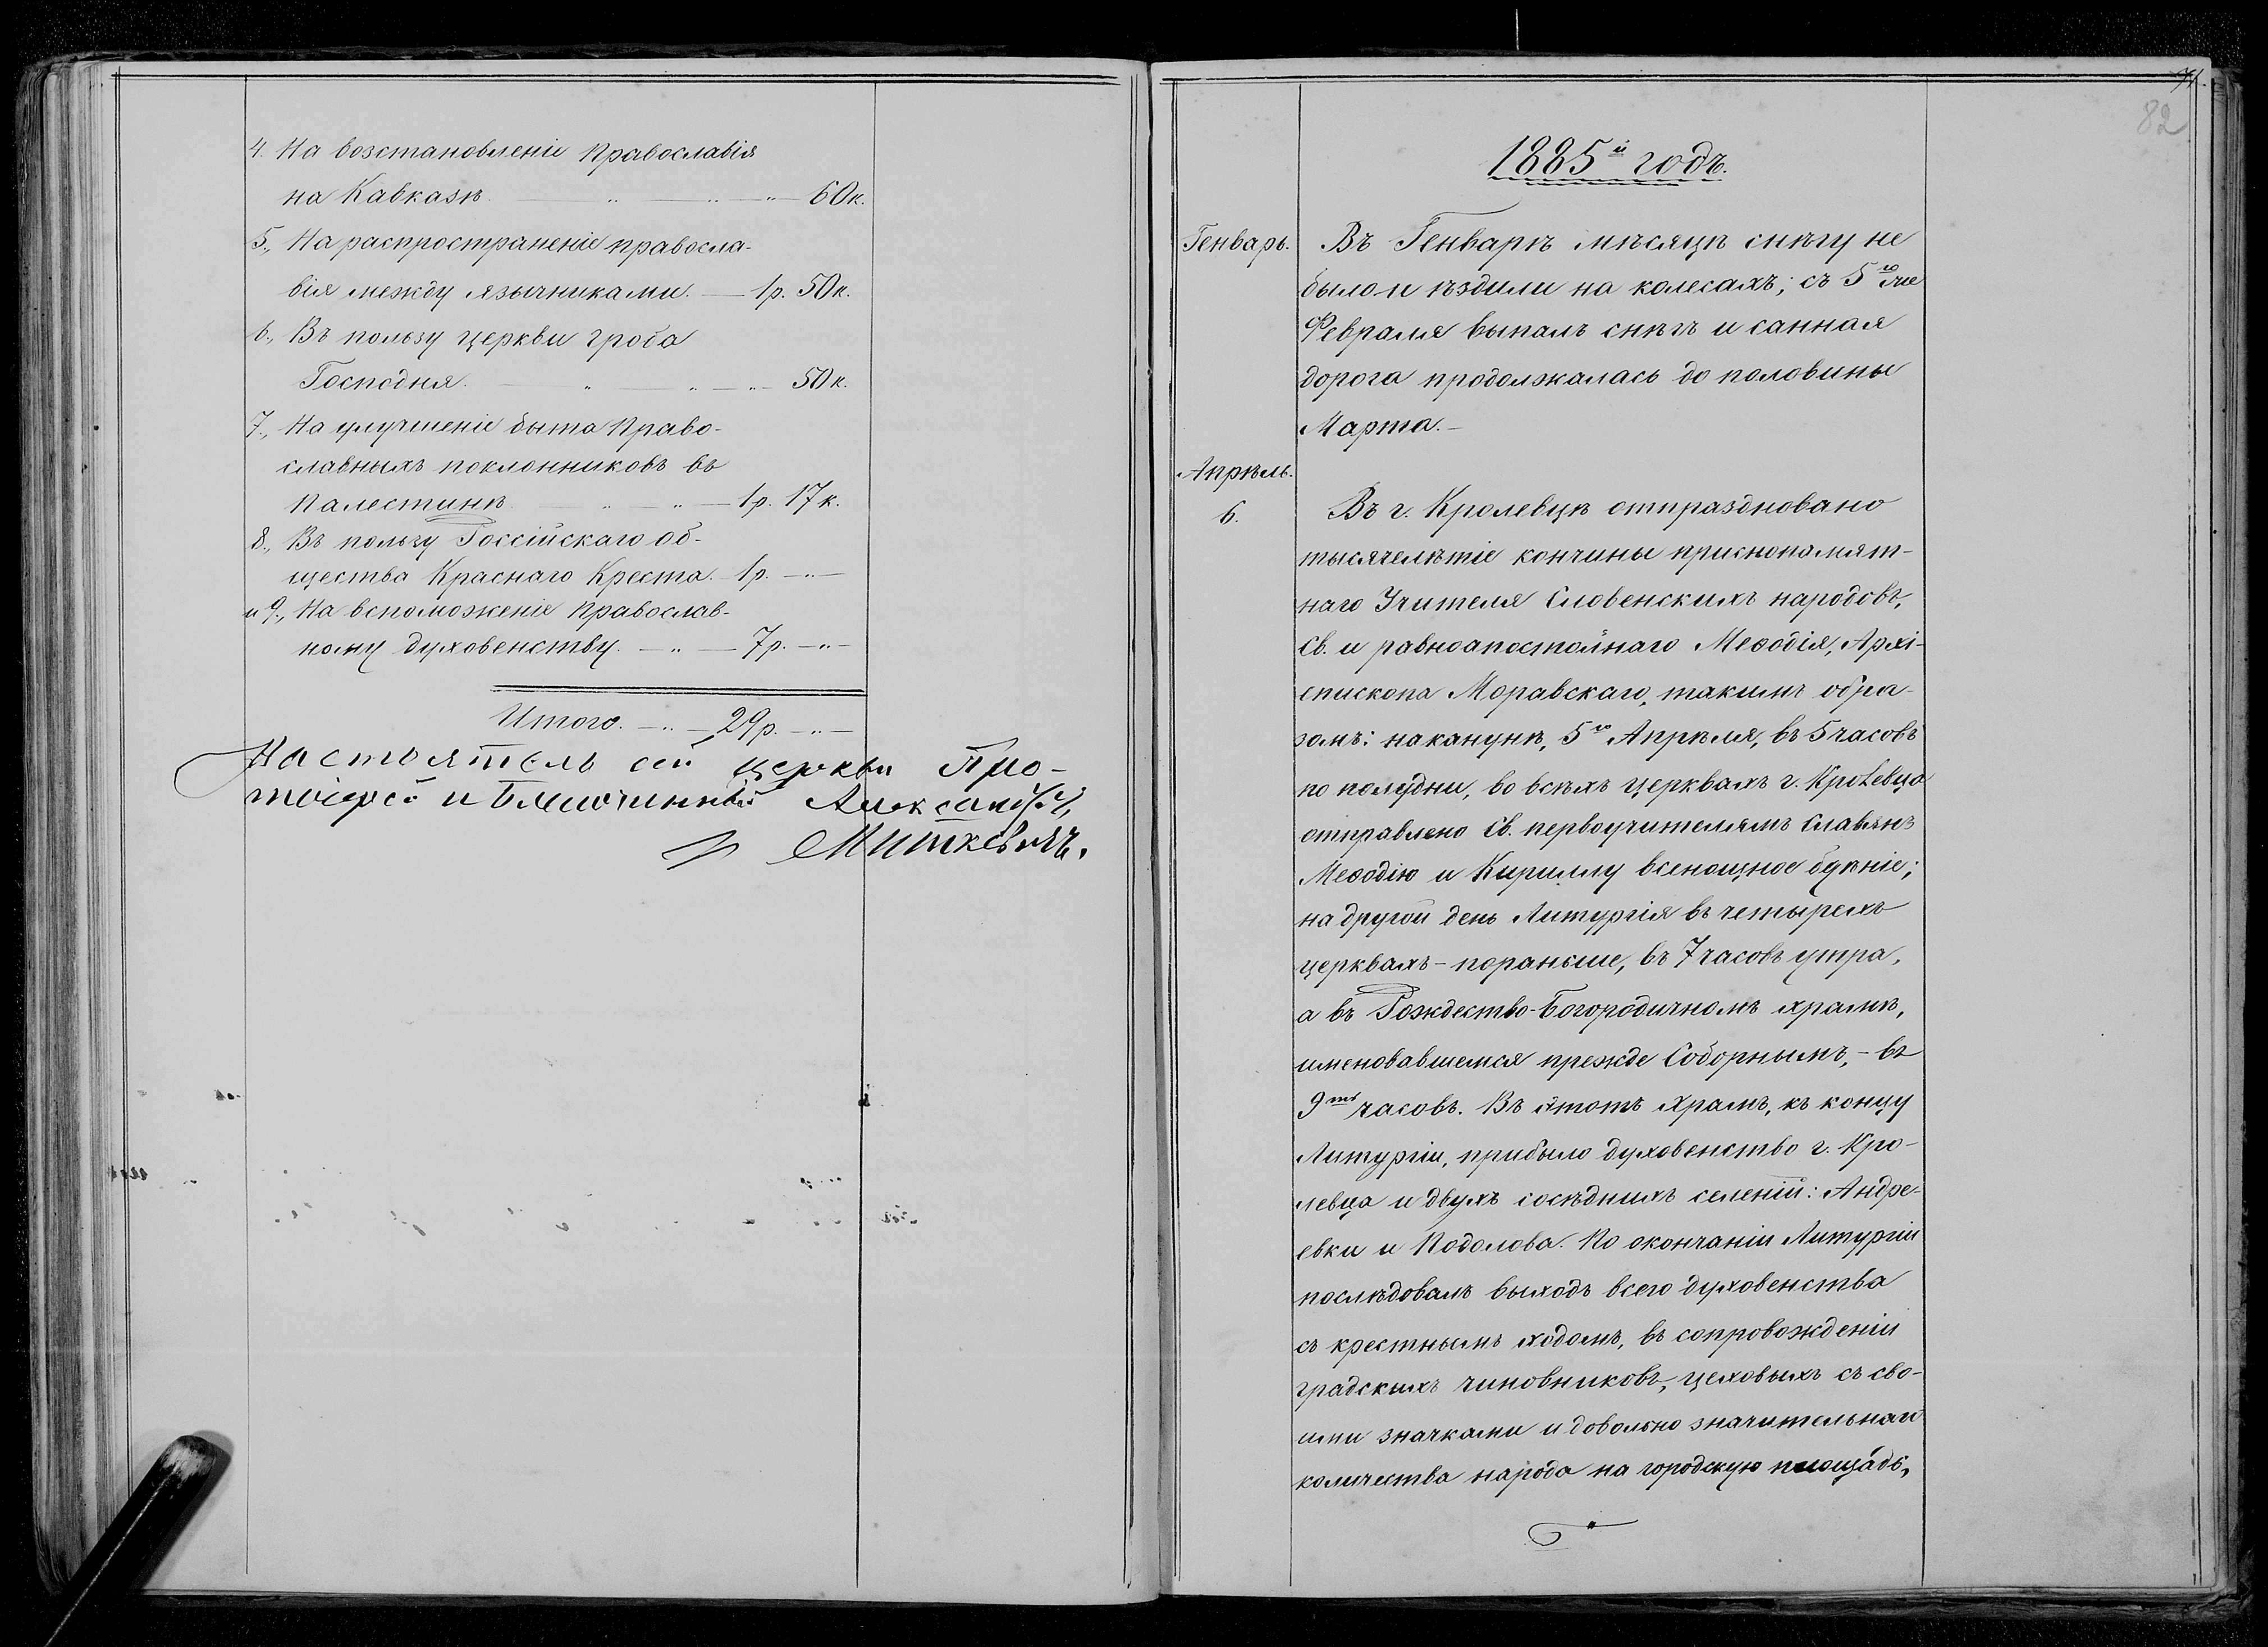 4. На возстановленіе Православія
на Кавказѣ. — " — " — " — 60 к.
5., На распространеніе правосла-
вія между язычниками. — 1 р. 50 к.
6., Въ пользу церкви гроба
Господня. — " — " — " — 50 к.
7., На улучшеніе быта Право-
славныхъ поклонниковъ въ
Палестинѣ — " — " — 1 р. 17 к.
8., Въ пользу Россійскаго об-
щества Краснаго Креста. — 1 р. — " —
и 9., На вспоможеніе Православ-
ному духовенству. — " — 7 р. — " —
Итого. — " — 29 р. — " —
Настоятель сей церкви Про-
тоіерей и Благочинный Александръ
Миткевичъ.
71.
82
1885й годъ.
Генварь.
Въ Генварѣ мѣсяцѣ снѣгу не
было и ѣздили на колесахъ; съ 5го же
Февраля выпалъ снѣгъ и санная
дорога продолжалась до половины
Марта. —
Апрѣль.
6.
Въ г. Кролевцѣ отпраздновано
тысячелѣтіе кончины приснопамят-
наго Учителя Словенскихъ народовъ,
Св. и равноапостольнаго Меѳодія, Архі-
епископа Моравскаго, такимъ обра-
зомъ: наканунѣ, 5го Апрѣля, въ 5 часовъ
по полудни, во всѣхъ церквахъ г. Кролевца
отправлено Св. первоучителямъ Славянъ
Меѳодію и Кириллу всенощное бдѣніе;
на другой день Литургія въ четырехъ
церквахъ – пораньше, въ 7 часовъ утра,
а въ Рождество-Богородичномъ храмѣ,
именовавшемся прежде Соборнымъ, – въ
9ть часовъ. Въ этотъ храмъ, къ концу
Литургіи, прибыло духовенство г. Кро-
левца и двухъ сосѣднихъ селеній: Андре-
евки и Подолова. По окончаніи Литургіи
послѣдовалъ выходъ всего духовенства
съ крестнымъ ходомъ, въ сопровожденіи
градскихъ чиновниковъ, цеховыхъ съ сво-
ими значками и довольно значительнаго
количества народа на городскую площадь,